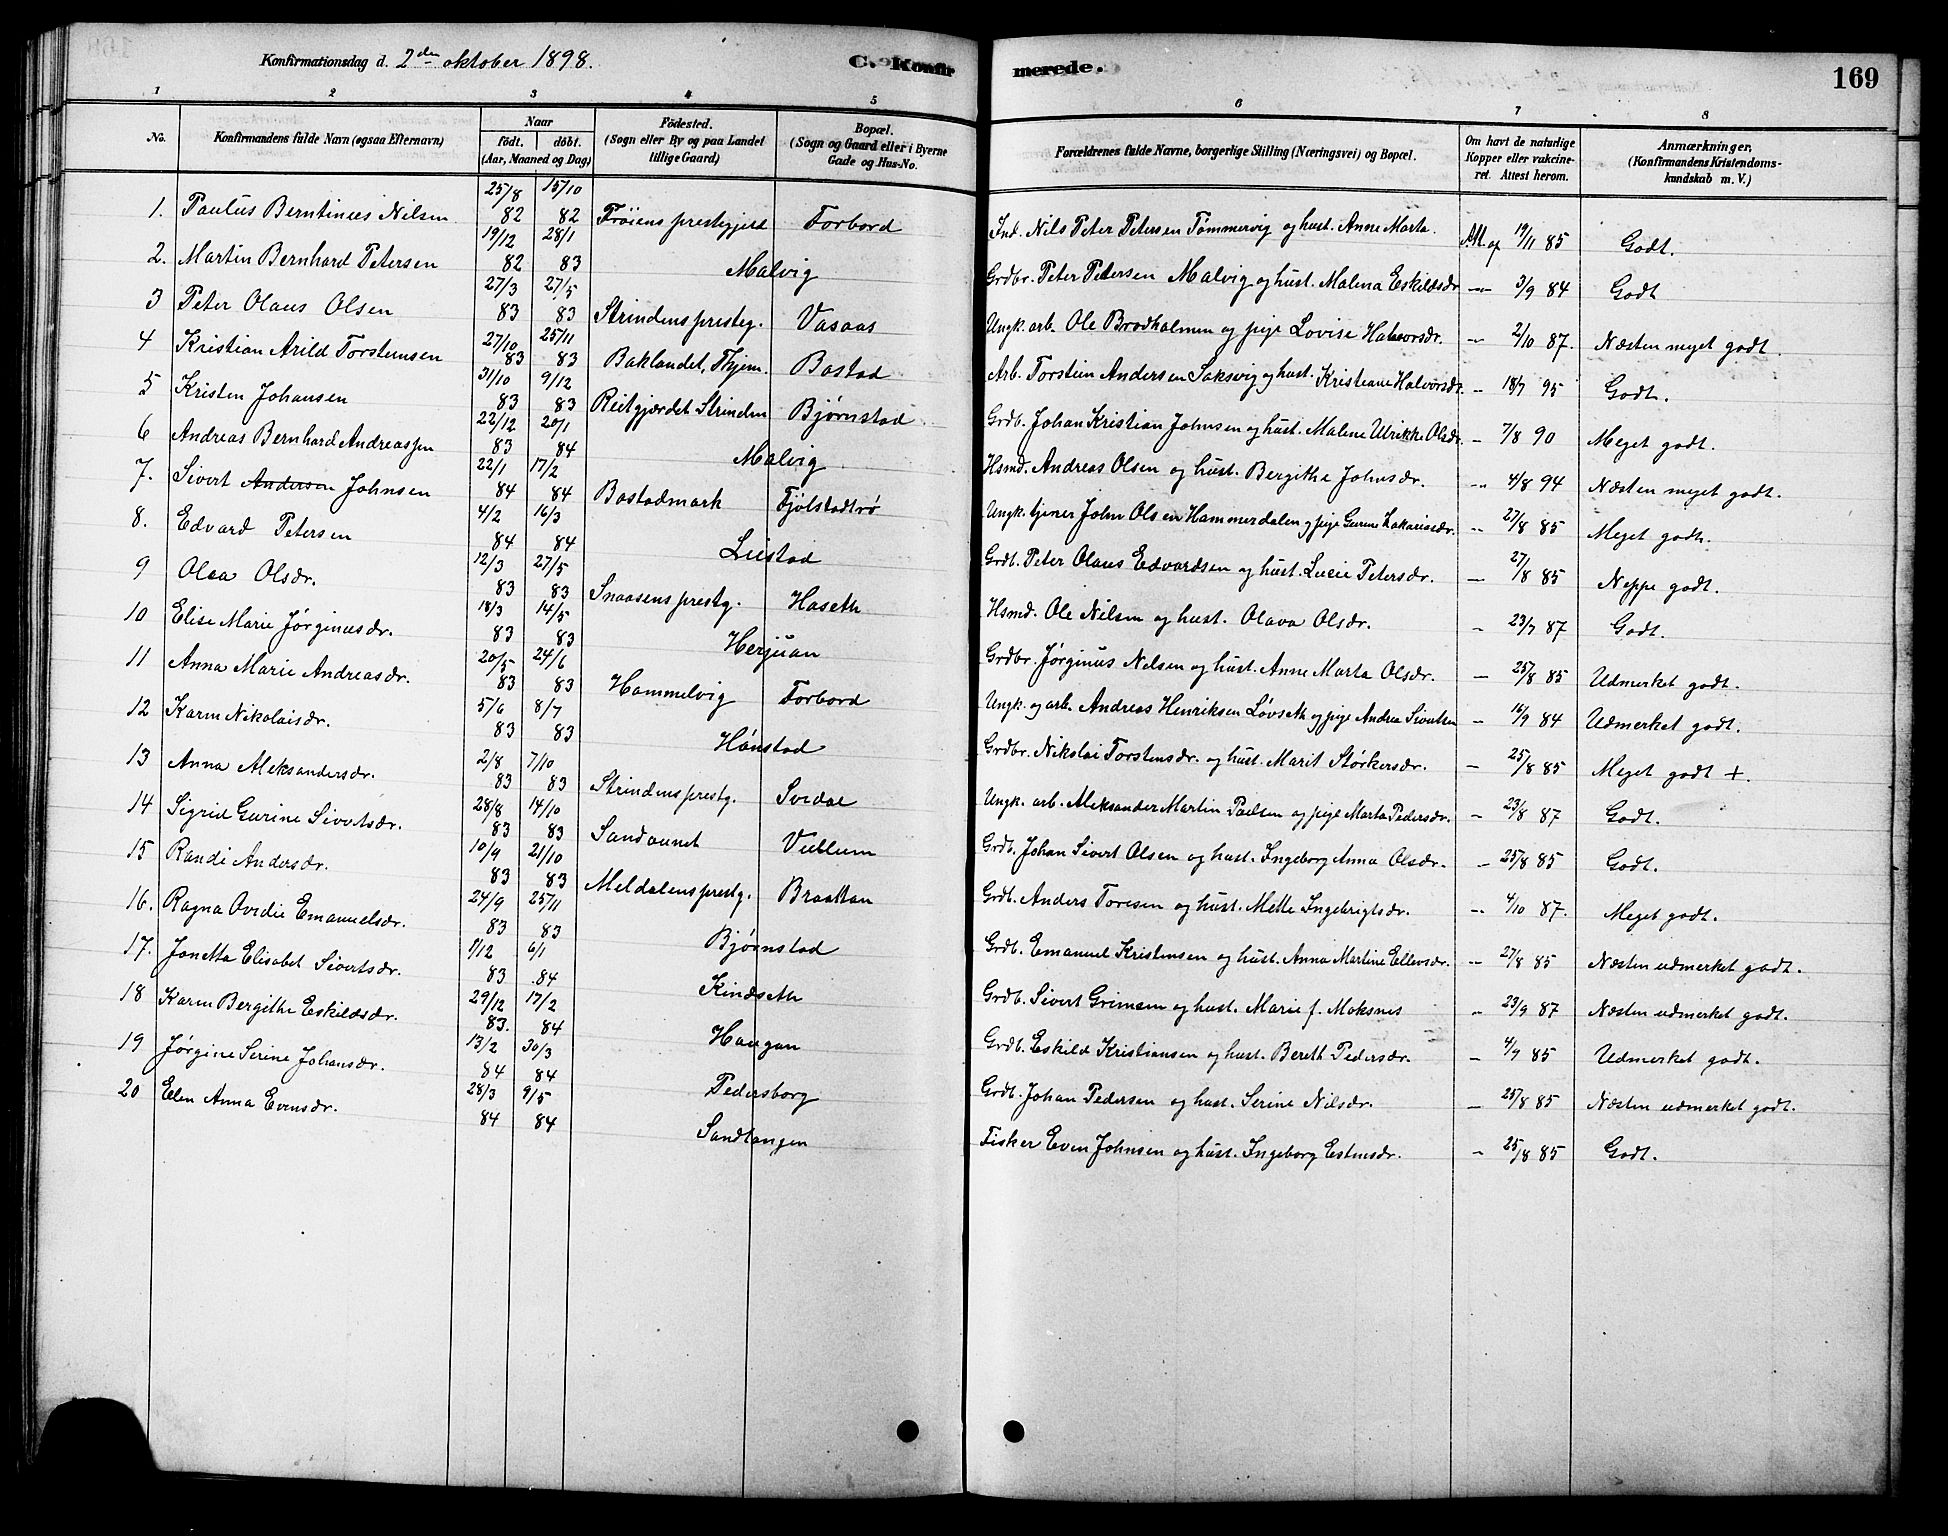 Konfirmationsdag d. 2den oktober 1898.
C. Konfirmerede.
169
1 2 3 4 5 6 7 8
No. Konfirmandens fulde Navn (ogsaa Efternavn) Naar født. døbt. (Aar, Maaned og Dag) Födested. (Sogn eller By og paa Landet tillige Gaard) Bopæl. (Sogn og Gaard eller i Byerne Gade og Hus-No. Forældrenes fulde Navne, borgerlige Stilling (Næringsvei) og Bopæl. Om havt de naturlige Kopper eller vakcineret. Attest herom. Anmærkninger, (Konfirmandens Kristendomskundskab m. V.)
1. Paulus Berntinus Nilsen 25/8 82 15/10 82 Frøiens prestegjeld Forbord Ind. Nils Peter Petersen Tømmervig og hust. Anne Marta. Att. af 19/11 85 Godt.
2. Martin Bernhard Petersen 19/12 82 28/1 83 Malvig Grdbr. Peter Petersen Malvig og hust. Malena Eskildsdr. 3/9 84 Godt
3 Peter Olaus Olsen 27/3 83 27/5 83 Strindens presteg. Vasaas Ungk. arb. Ole Brodholmen og pige Lovise Halvorsdr. - 2/10 87. Næsten meget godt.
4 Kristian Arild Torsteinsen 27/10 83 25/11 83 Baklandet, Thjem. Bostad Arb. Torstein Andersen Saksvig og hust. Kristiane Halvorsdr. - 18/7 95 Godt.
5 Kristen Johansen 31/10 83 9/12 83 Reitgjærdet Strinden Bjørnstad Grdb. Johan Kristian Johnsen og hust. Malene Ulrikke Olsdr. - 7/8 90 Meget godt.
6 Andreas Bernhard Andreassen 22/12 83 20/1 84 Malvig Hsmd. Andreas Olsen og hust. Bergithe Johnsdr. - 4/8 94 Næsten meget godt.
7. Sivert Andersen Johnsen 22/1 84 17/2 84 Bostadmark Fjølstadtrø Ungk. tjener John Olsen Hammerdalen og pige Gurine Zakariasdr. - 27/8 85 Meget godt.
8. Edvard Petersen 4/2 84 16/3 84 Leistad Grdb. Peter Olaus Edvardsen og hust. Lucie Petersdr. - 27/8 85 Neppe godt.
9 Olea Olsdr. 12/3 83 27/5 83 Snaasens prestg. Haseth Hsmd. Ole Nilsen og hust. Olava Olsdr. - 23/7 87 Godt.
10 Elise Marie Jørginusdr. 18/3 83 14/5 83 Herjuan Grdbr. Jørginus Nilsen og hust. Anne Marta Olsdr. - 25/8 85 Udmerket godt.
11 Anna Marie Andreasdr. 20/5 83 24/6 83 Hammelvig Forbord Ungk. og arb. Andreas Henriksen Løvseth og pige Andrea Sivertsen - 16/9 84 Udmerket godt.
12 Karen Nikolaisdr. 5/6 83 8/7 83 Hønstad Grdbr. Nikolai Torstensdr. og hust. Marit Størkersdr. - 25/8 85 Meget godt +.
13 Anna Aleksandersdr. 2/8 83 7/10 83 Strindens prestg. Svedal Ungk. arb. Aleksander Martin Paulsen og pige Marta Pedersdr. - 23/8 87 Godt.
14 Sigrid Gurine Sivertsdr. 28/8 83 14/10 83 Sandaunet Vullum Grdb. Johan Sivert Olsen og hust. Ingeborg Anna Olsdr. - 25/8 85 Godt.
15 Randi Andersdr. 10/9 83 21/10 83 Meldalens prestg. Braattan Grdb. Anders Toresen og hust. Mette Ingebrigtsdr. - 4/10 87. Meget godt.
16. Ragna Ovidie Emanuelsdr. 24/9 83 25/11 83 Bjørnstad Grdb. Emanuel Kristensen og hust. Anna Martine Ellevsdr. - 27/8 85 Næsten udmerket godt.
17. Jonetta Elisabet Sivertsdr. 1/12 83 6/1 84 Kindseth Grdb. Sivert Grimsen og hust. Marie f. Moksnes - 23/9 87 Næsten udmerket godt.
18 Karen Bergithe Eskildsdr. 29/12 83. 17/2 84 Haugan Grdb. Eskild Kristiansen og hust. Berett Pedersdr. - 4/9 85 Udmerket godt.
19 Jørgine Serine Johansdr. 13/2 84 30/3 84 Pedersborg Grdb. Johan Pedersen og hust. Serine Nilsdr. - 25/8 85 Næsten udmerket godt.
20 Elen Anna Evensdr. 28/3 84 9/5 84 Sandtangen Fisker Even Johnsen og hust. Ingeborg Estensdr. - 25/8 85 Godt.